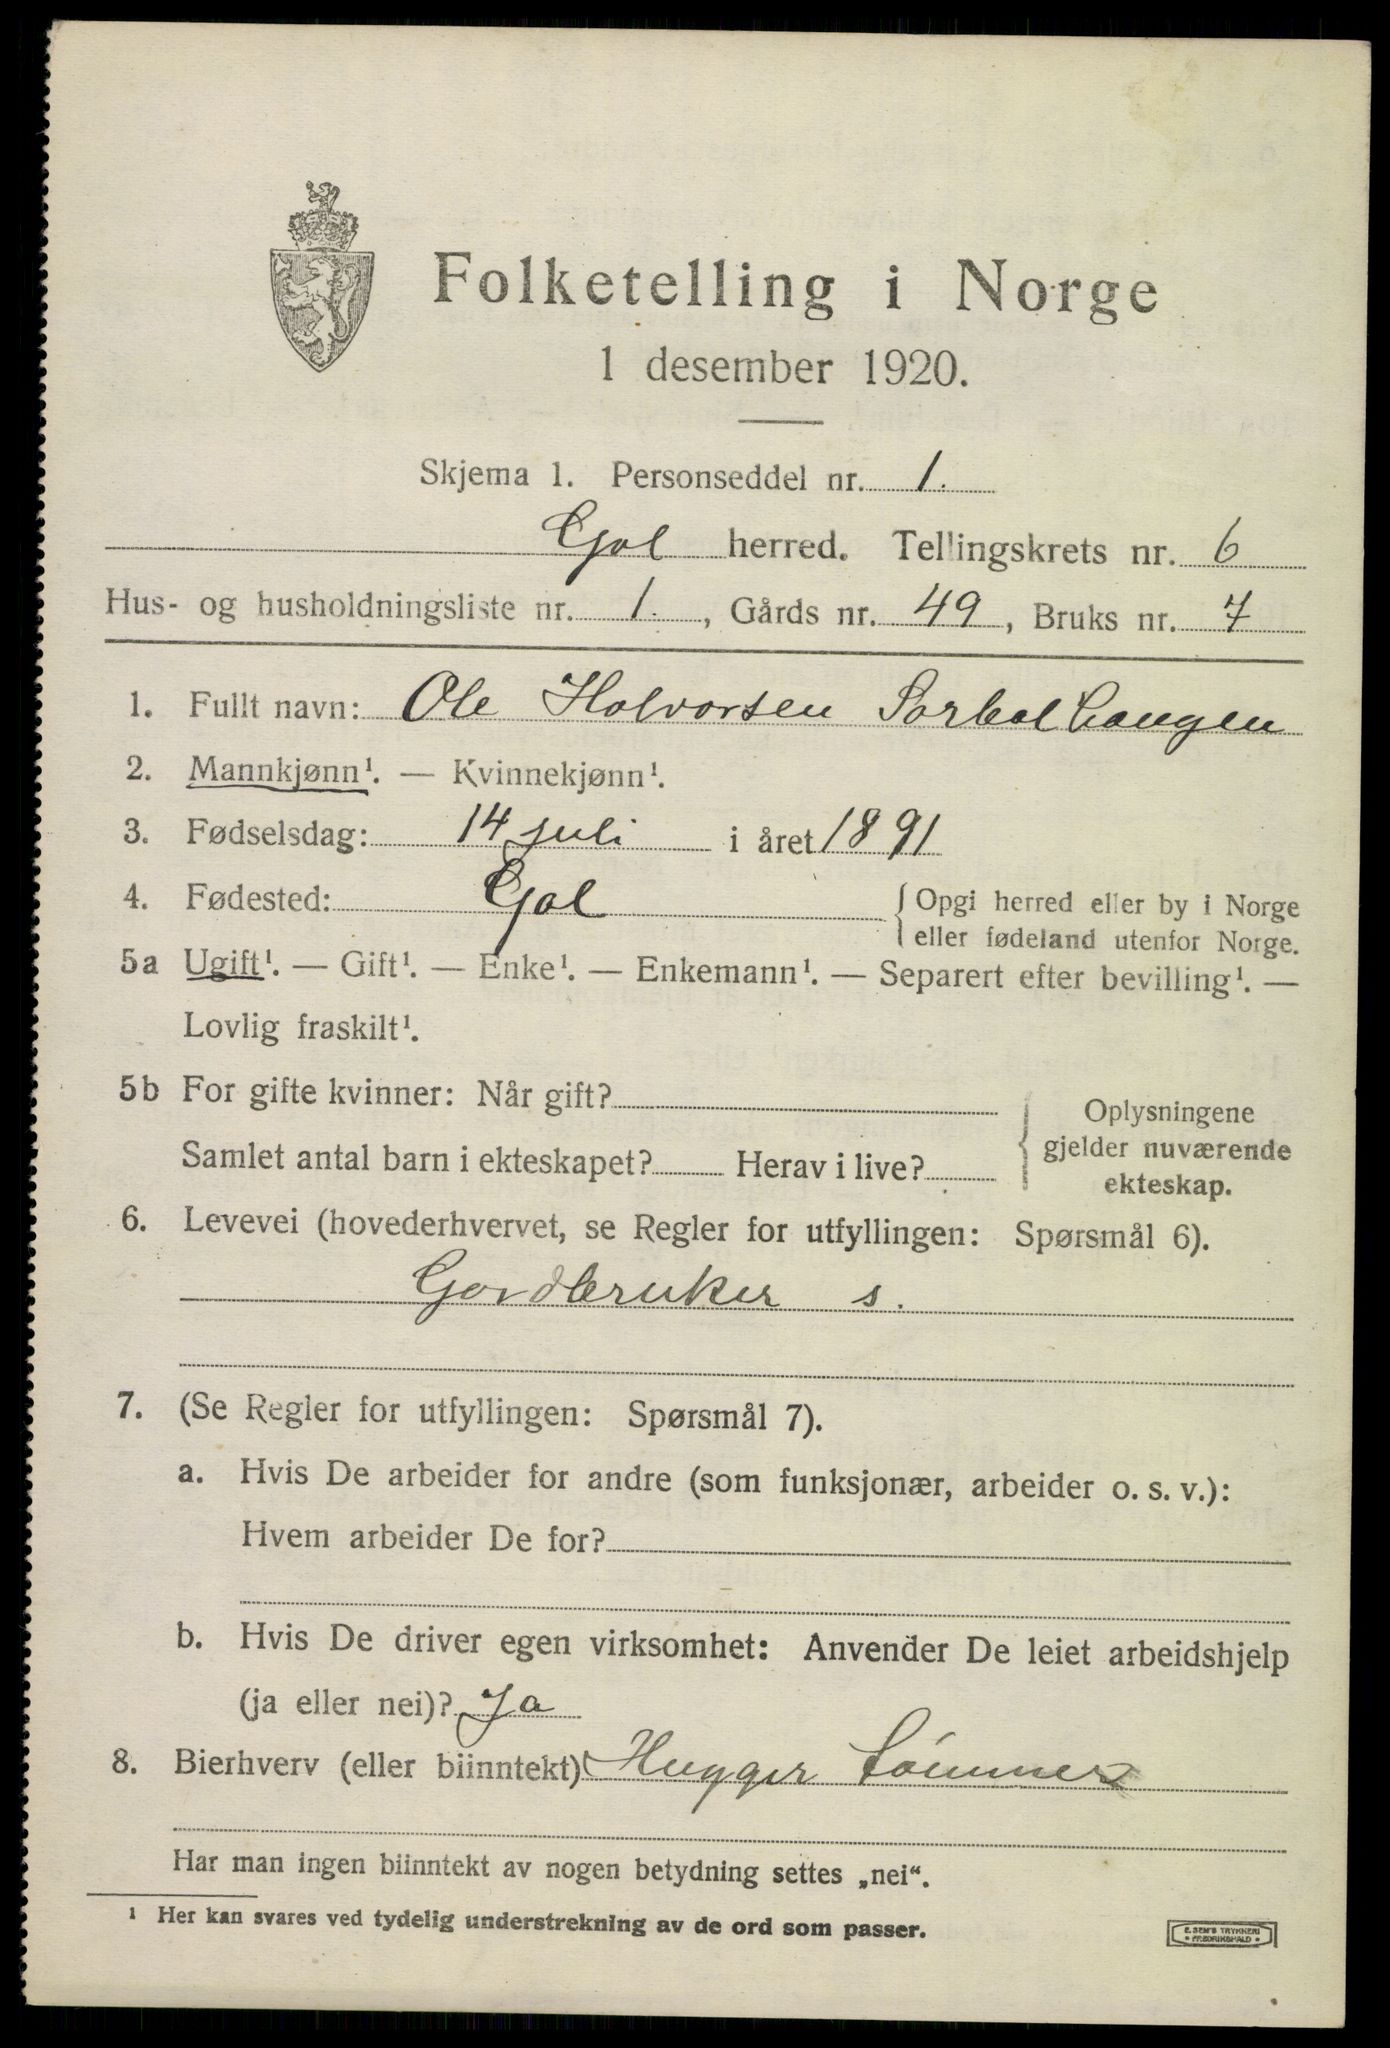 Folketelling i Norge
1 desember 1920.
Skjema 1. Personseddel nr. 1.
Gol herred. Tellingskrets nr. 6
Hus- og husholdningsliste nr. 1. , Gårds nr. 49 , Bruks nr. 7
1. Fullt navn: Ole Halvorsen Sorbel haugen
2. Mannkjønn¹. — Kvinnekjønn¹.
3. Fødselsdag: 14 juli i året 1891
4. Fødested: Gol { Opgi herred eller by i Norge
eller fødeland utenfor Norge.
5a Ugift¹. — Gift¹. — Enke¹. — Enkemann¹. — Separert efter bevilling¹. —
Lovlig fraskilt¹.
5b For gifte kvinner: Når gift?
Samlet antal barn i ekteskapet? Herav i live?
{ Oplysningene
gjelder nuværende
ekteskap.
6. Levevei (hovederhvervet, se Regler for utfyllingen: Spørsmål 6).
Gardbruker s.
7. (Se Regler for utfyllingen: Spørsmål 7).
a. Hvis De arbeider for andre (som funksjonær, arbeider o. s. v.):
Hvem arbeider De for?
b. Hvis De driver egen virksomhet: Anvender De leiet arbeidshjelp
(ja eller nei)? Ja
8. Bierhverv (eller biinntekt) Hugger tömmer
Har man ingen biinntekt av nogen betydning settes „nei“.
¹ Her kan svares ved tydelig understrekning av de ord som passer.
E. SEM'S TRYKKERI
* FREDRIKSHALD *